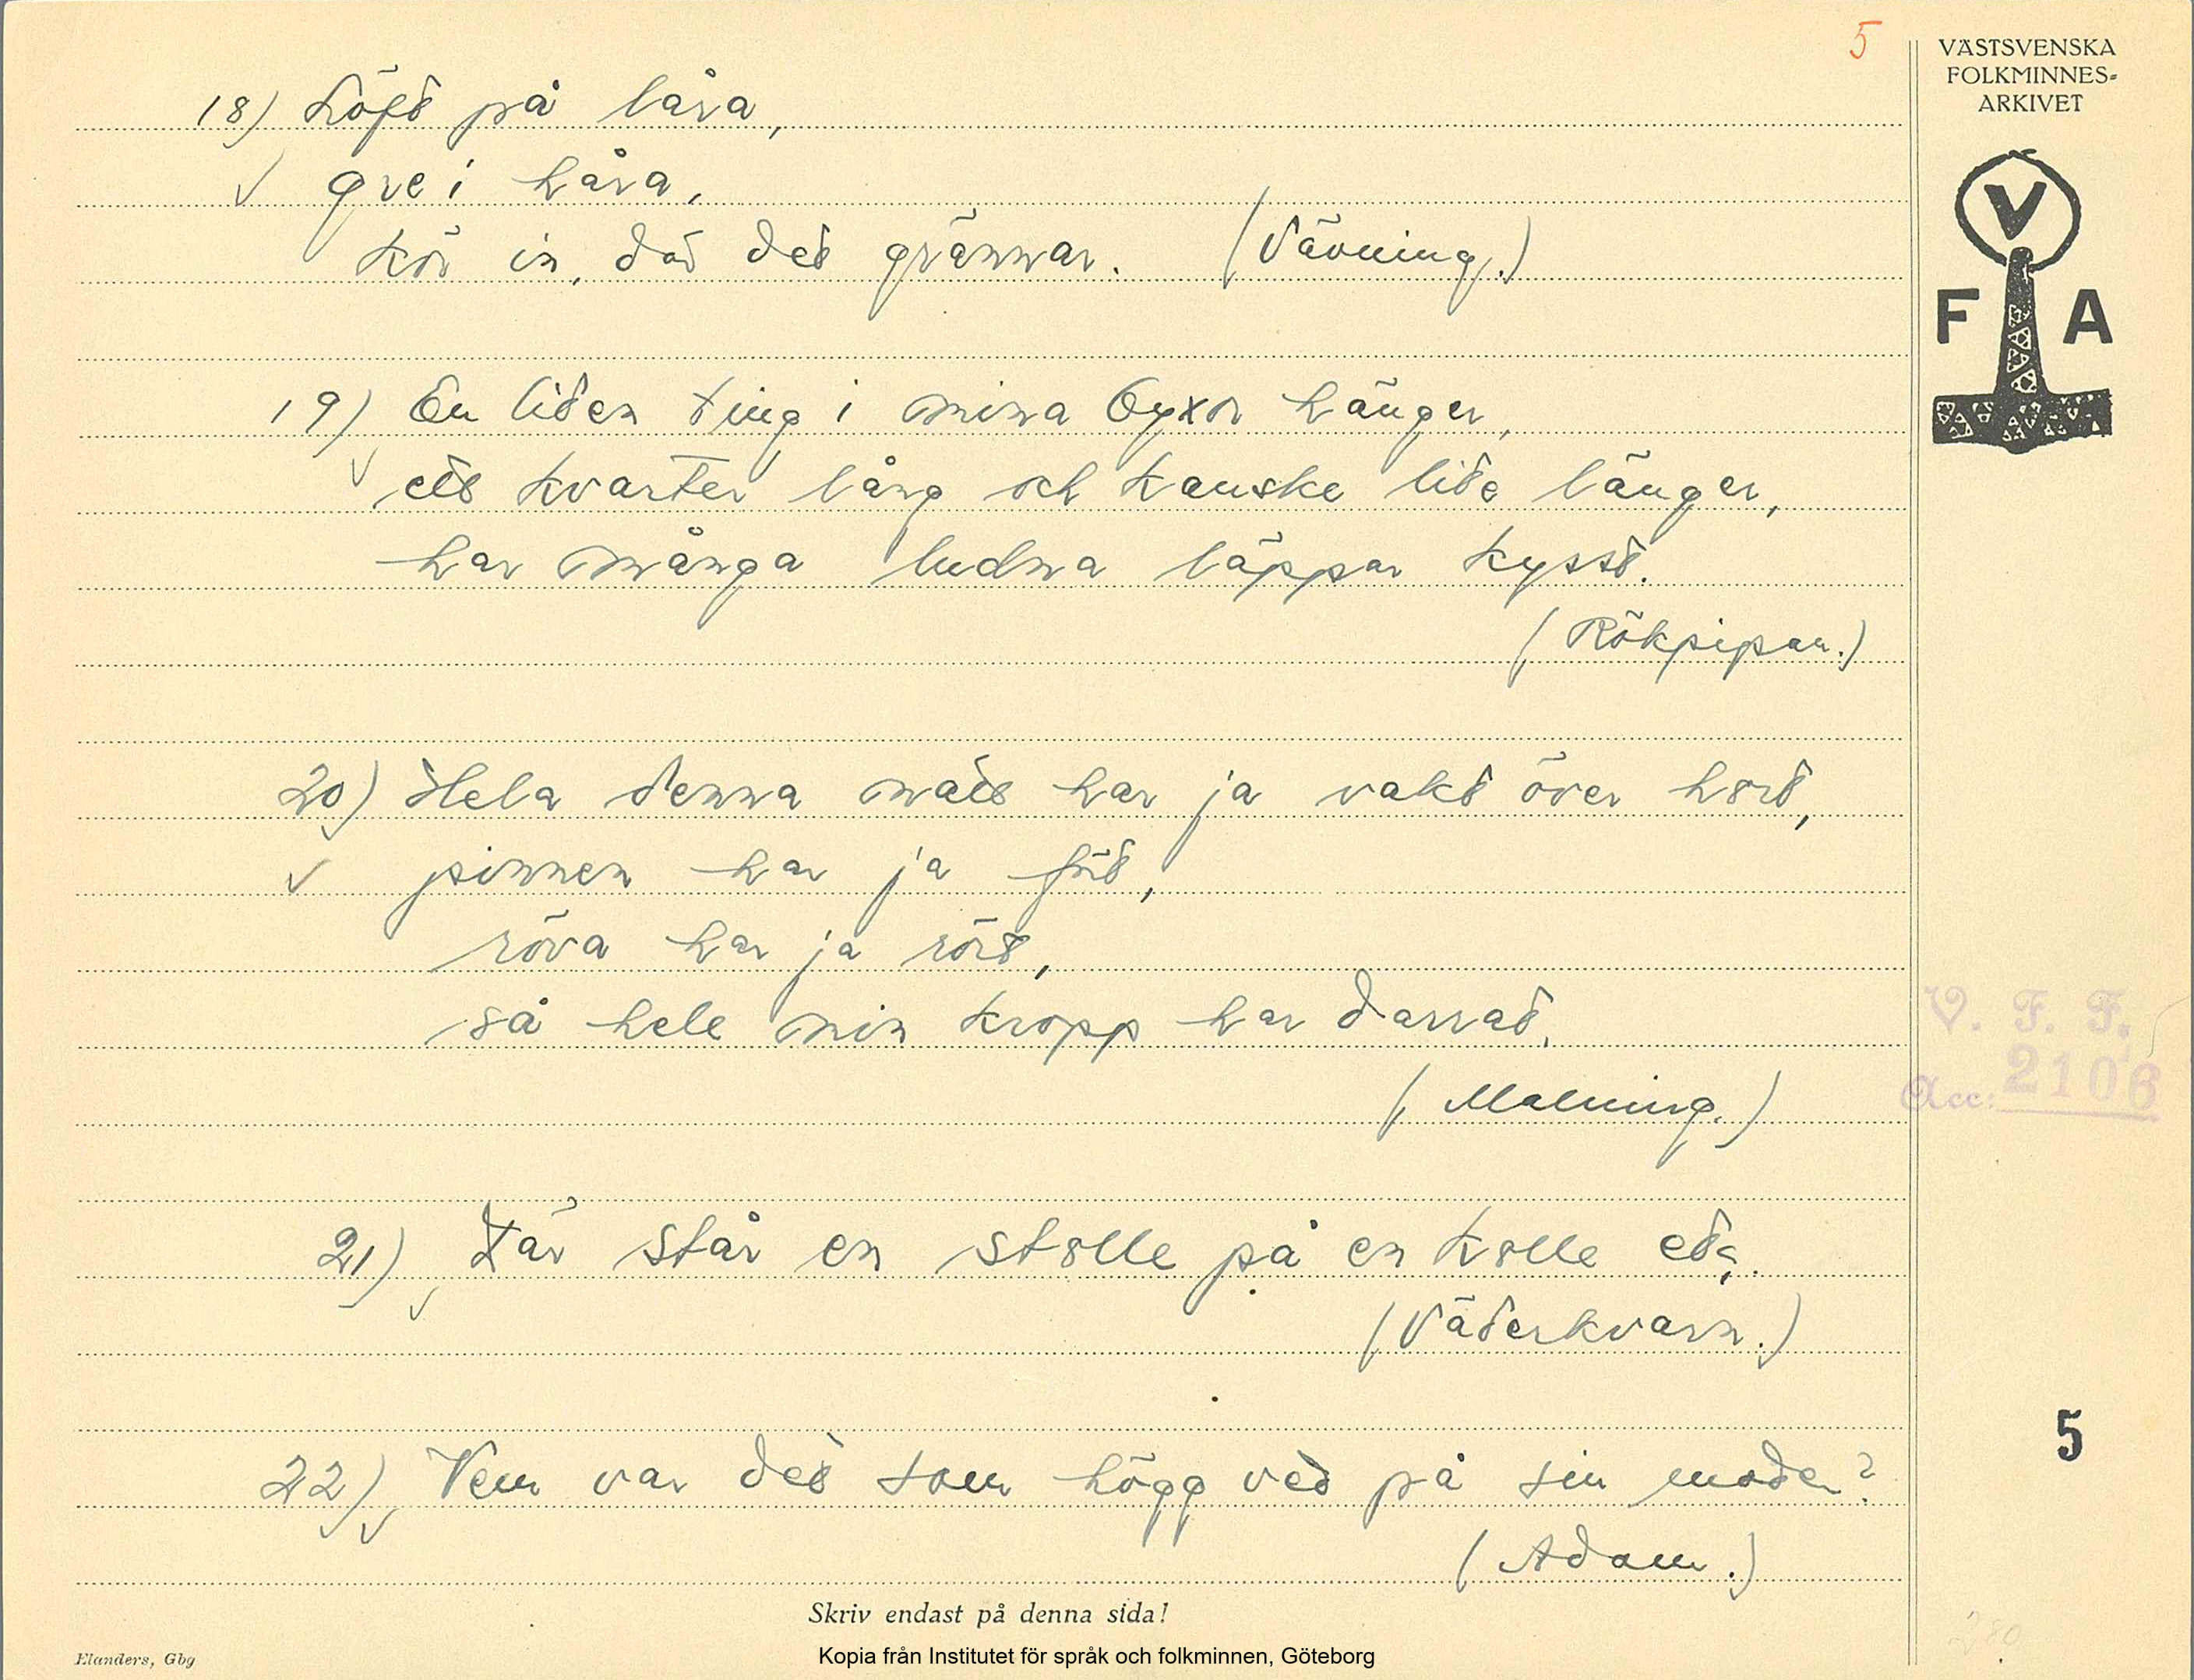 5
VÄSTSVENSKA
FOLKMINNES=
ARKIVET
V
F A
18) Löft på låra,
grei håra,
kör in, där det grännar. (Vävning.)
19) En liten ting i mina byxor hänger,
ett kvarter lång och kanske lite länger,
har många ludna läppar kysst.
(Rökpipan.)
20) Hela denna natt har ja vakt över hort,
pinnen har ja fört,
röva har ja rört,
så hele min kropp har darrat.
(Malning.)
V. F. F.
Acc: 2106
21) Där står en stolle på en kolle etc.
(Väderkvarn.)
5
22) Vem var det som högg ved på sin moder?
(Adam.)
Skriv endast på denna sida!
Elanders, Gbg
Kopia från Institutet för språk och folkminnen, Göteborg